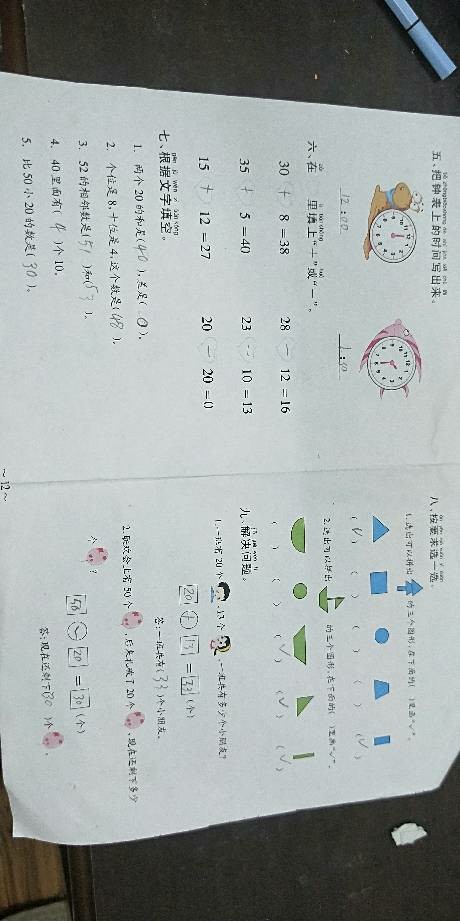 五、把钟表上的时间写出来。
12:00
1:00
六、在 里填上“＋”或“－”。
30 + 8 = 38
28 - 12 = 16
35 + 5 = 40
23 - 10 = 13
15 + 12 = 27
20 - 20 = 0
七、根据文字填空。
1. 两个20的和是(40),差是(0)。
2. 个位是8,十位是4,这个数是(48)。
3. 52的相邻数是(51)和(53)。
4. 40里面有(4)个10。
5. 比50小20的数是(30)。
~ 12 ~
八、按要求选一选。
1. 选出可以拼出 的三个图形,在下面的( )里画“√”。
(√) ( ) ( ) ( ) (√)
2. 选出可以拼出 的三个图形,在下面的( )里画“√”。
( ) ( ) (√) (√) (√)
九、解决问题。
1. 一班有20个 ,13个 ,一班共有多少个小朋友?
20 + 13 = 33 (个)
答:一班共有(33)个小朋友。
2. 联欢会上有50个 ,后来扎破了20个 ,现在还剩下多少
个 ?
50 - 20 = 30 (个)
答:现在还剩下(30)个 。